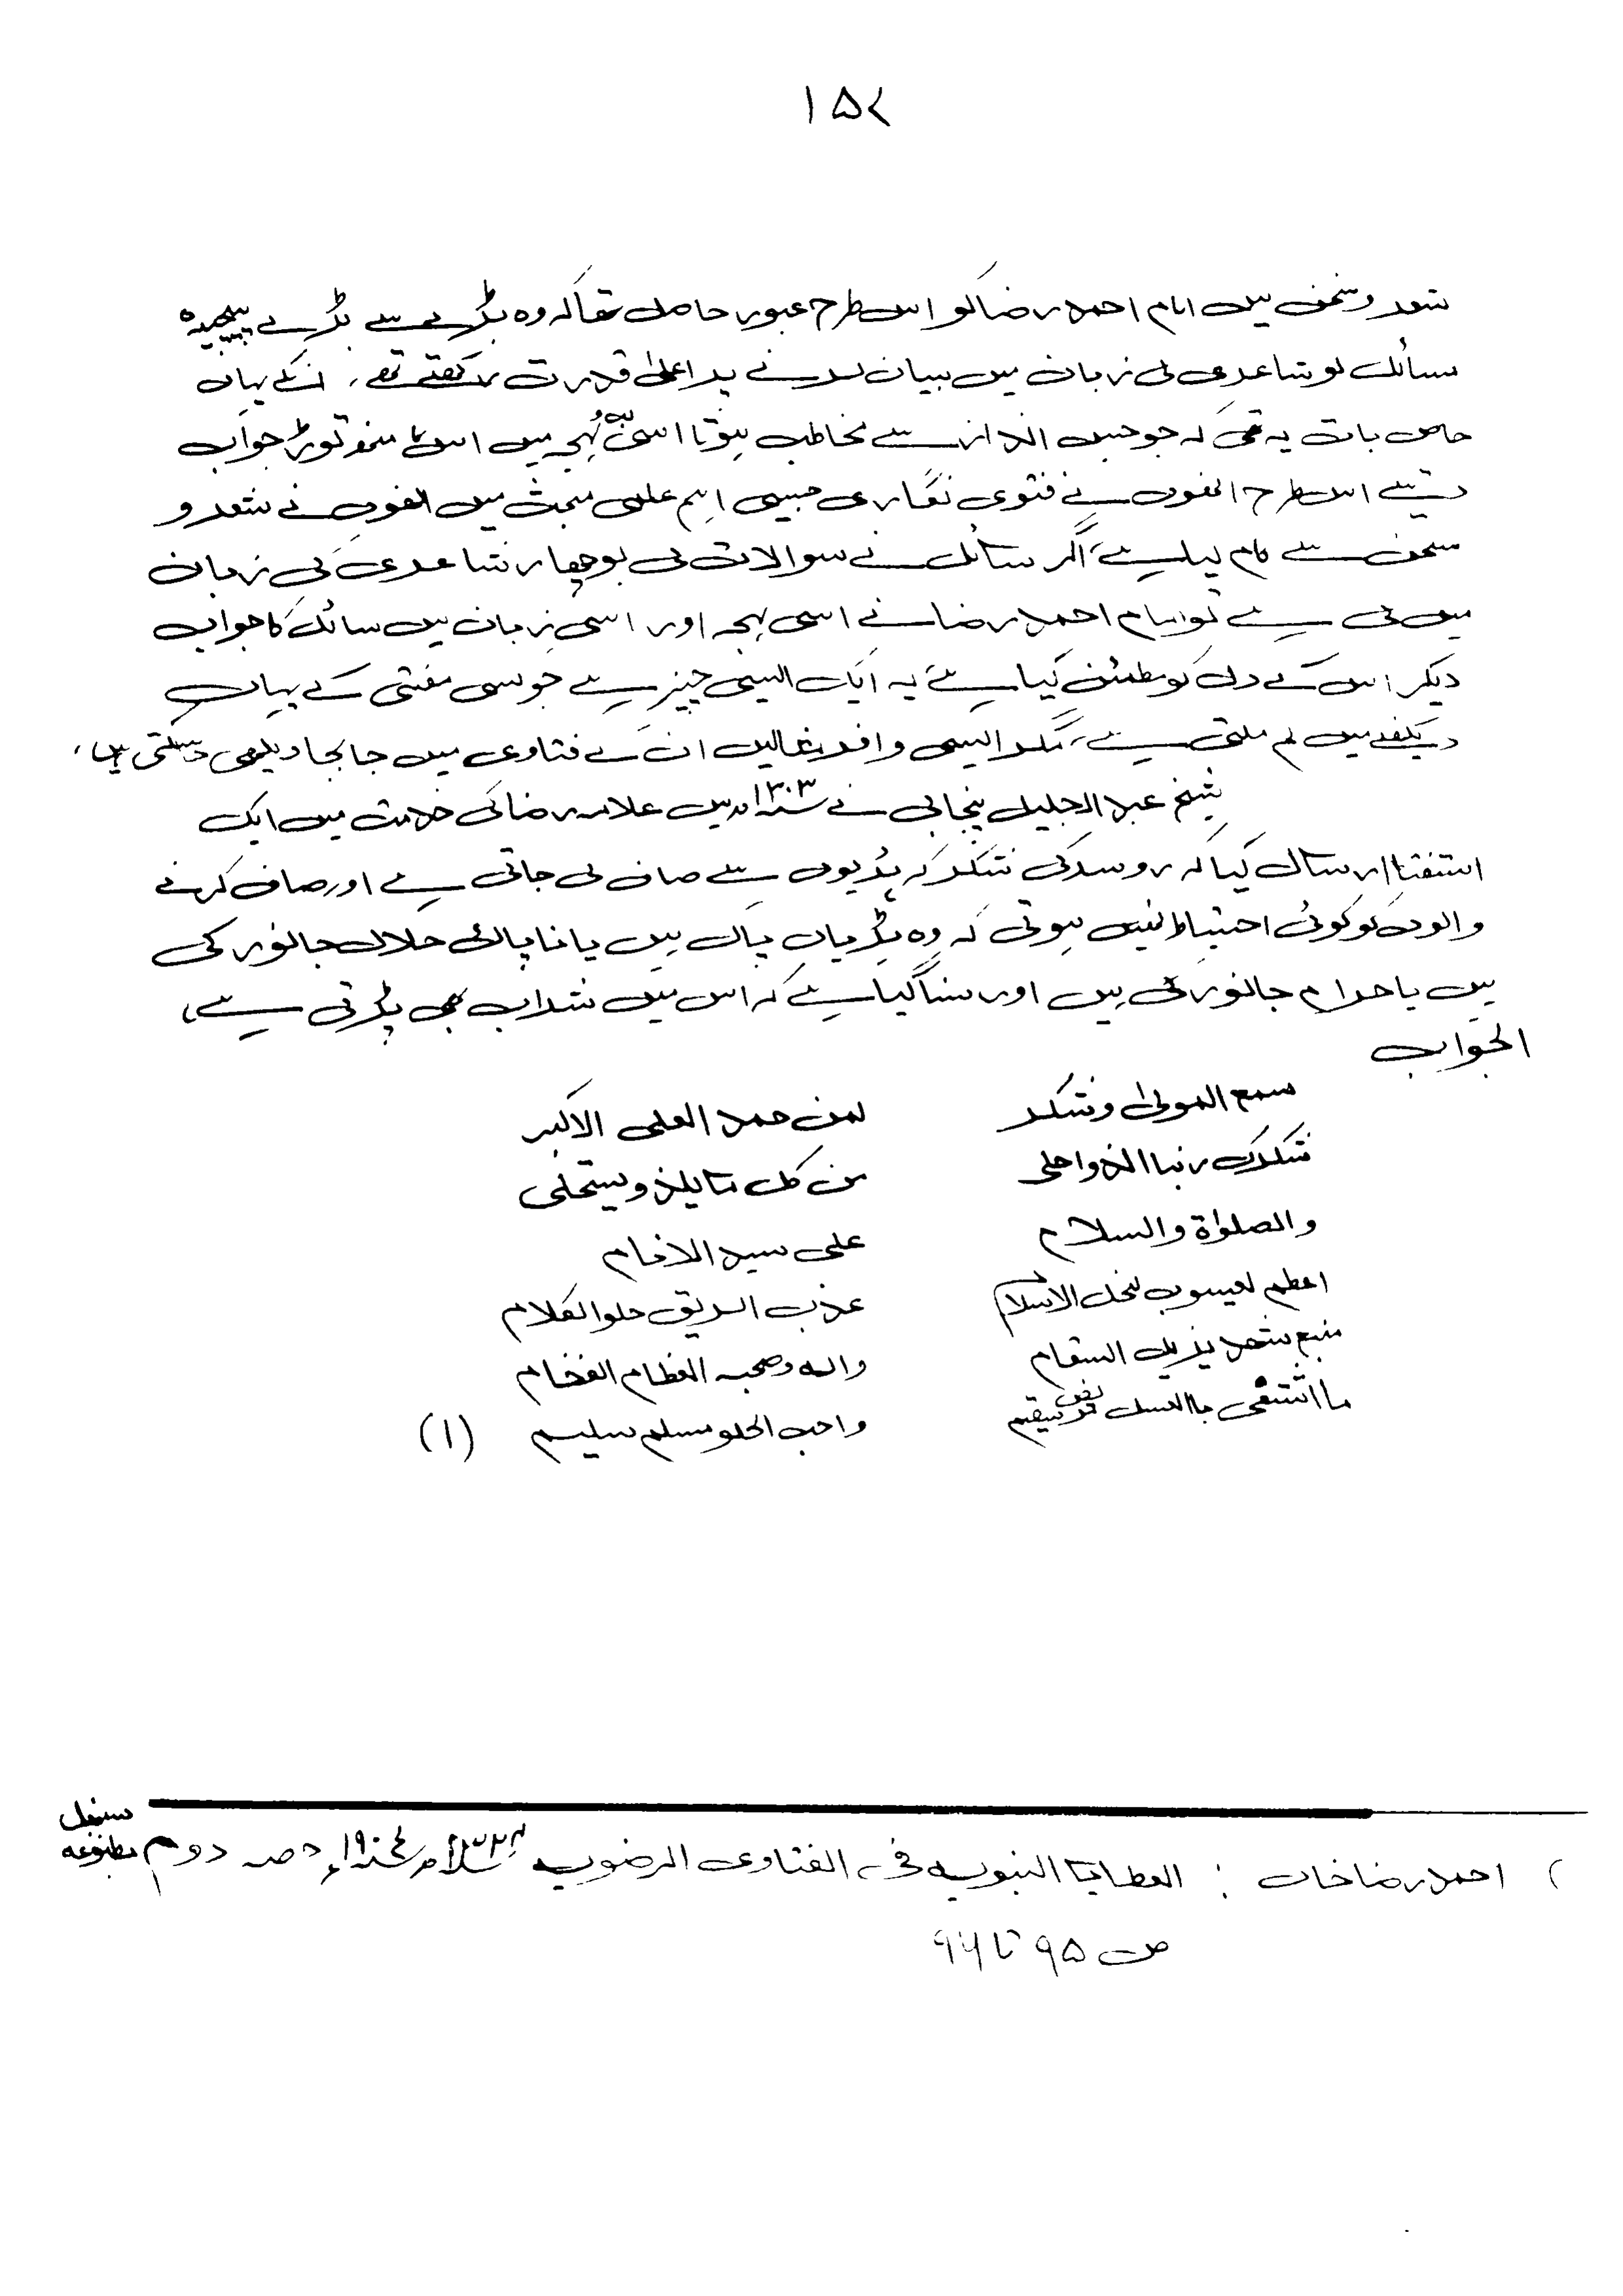 ۱۵۲
شعر و سخن میں امام احمد رضا کو اس طرح عبور حاصل تھا کہ وہ بڑے سے بڑے پیچیدہ
مسائل کو شاعری کی زبان میں بیان کرنے پر اعلیٰ قدرت رکھتے تھے، انکے یہاں
خاص بات یہ تھی کہ جو جس انداز سے مخاطب ہوتا اسی لہجہ میں اس کا منھ توڑ جواب
دیتے اس طرح انھوں نے فتویٰ نگاری جیسی اہم علمی مبحث میں انھوں نے شعر و
سخن سے کام لیا ہے، اگر سائل نے سوالات کی بوچھار شاعری کی زبان
میں کی ہے تو امام احمد رضا نے اسی لہجہ اور اسی زبان میں سائل کا جواب
دیکر اس کے دل کو مطمئن کیا ہے، یہ ایک ایسی چیز ہے جو کسی مفتی کے یہاں
دیکھنے میں کم ملتی ہے، مگر ایسی وافر مثالیں ان کے فتاویٰ میں جا بجا دیکھی جا سکتی ہیں،
شیخ عبد الجلیل پنجابی نے ۱۳۰۳ھ میں علامہ رضا کی خدمت میں ایک
استفتا ارسال کیا کہ روسر کی شکر کہ ہڈیوں سے صاف کی جاتی ہے اور صاف کرنے
والوں کو کوئی احتیاط نہیں ہوتی کہ وہ ہڈیاں پاک ہیں یا ناپاک، حلال جانور کی
ہیں یا حرام جانور کی ہیں اور سنا گیا ہے کہ اس میں شراب بھی پڑتی ہے،
الجواب
سمع المولیٰ وشکر لمن حمد العلی الاکبر
شکرک ربنا الذ واحلی من کل ما یلذ ویستحلی
والصلوٰة والسلام علی سید الانام
اعظم یعسوب لنحل الاسلام عذب الریق حلو الکلام
منبع شھد یزیل السقام واله وصحبه العظام الفخام
ما اشتفی بالعسل سقیم واحب الحلو مسلم سلیم (۱)
) احمد رضا خاں : العطایا النبویه فی الفتاوی الرضویه ۱۳۲۲ھ / ۱۹۰۴ء حصہ دوم مطبوعہ سنبھل
ص ۹۵ تا ۹۶